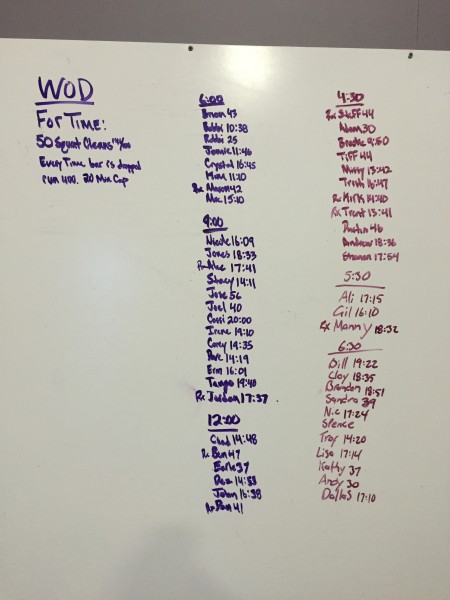 WOD
For Time:
50 Squat Cleans
Every Time bar is dropped
run 400. 20 Min Cap
6:00
Brian 43
Bobbi 10:38
Robbi 25
Jamie 11:46
Crystal 16:45
Mimi 11:10
Rx Mason 42
Mac 15:10
9:00
Nicole 16:09
Jones 18:33
Rx 17:41
Stacy 14:11
Jose 56
Joel 40
Cassi 20:00
Irene 19:10
Corey 19:35
14:19
Erin 16:01
Tango 19:40
Rx Jordan 17:37
12:00
Chad 14:48
Rx Ben 47
Earl 37
Dez 14:53
John 16:38
Rx Dan 41
4:30
Rx Steff 44
Adam 30
Brooke 9:50
Tiff 44
Matty 13:42
Trish 16:47
Rx Kirk 14:40
Rx Trent 13:41
Dustin 46
Andrew 18:36
Shannon 17:54
5:30
Ali 17:15
Gil 16:10
Rx Manny 18:32
6:30
Bill 19:22
Clay 18:35
Brandon 18:51
Sandra 39
Nic 17:24
Spence
Troy 14:20
Lisa 17:14
Kathy 37
Andy 30
Dallas 17:10